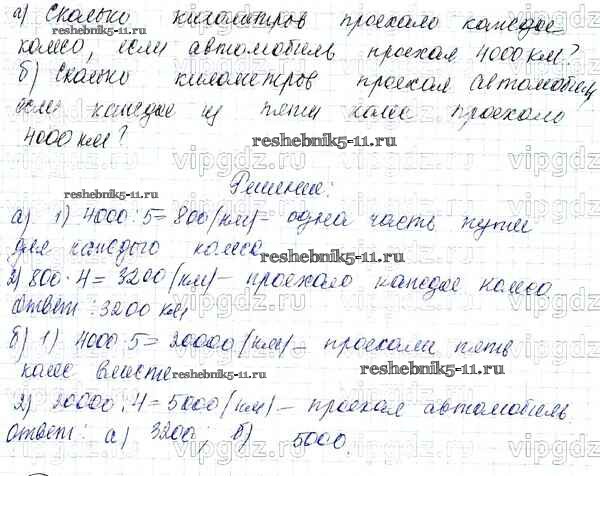 а) Сколько километров проехало каждое
колесо, если автомобиль проехал 4000 км?
б) Сколько километров проехал автомобиль,
если каждое из пяти колес проехало
4000 км?
reshebnik5-11.ru
vipgdz.ru
Решение:
а) 1) 4000:5=800(км)= одна часть пути
для каждого колеса
2) 800·4=3200(км)- проехало каждое колесо
Ответ: 3200 км
б) 1) 4000·5=20000(км)- проехали пять
колес вместе
2) 20000:4=5000(км)- проехал автомобиль.
Ответ: а) 3200; б) 5000.